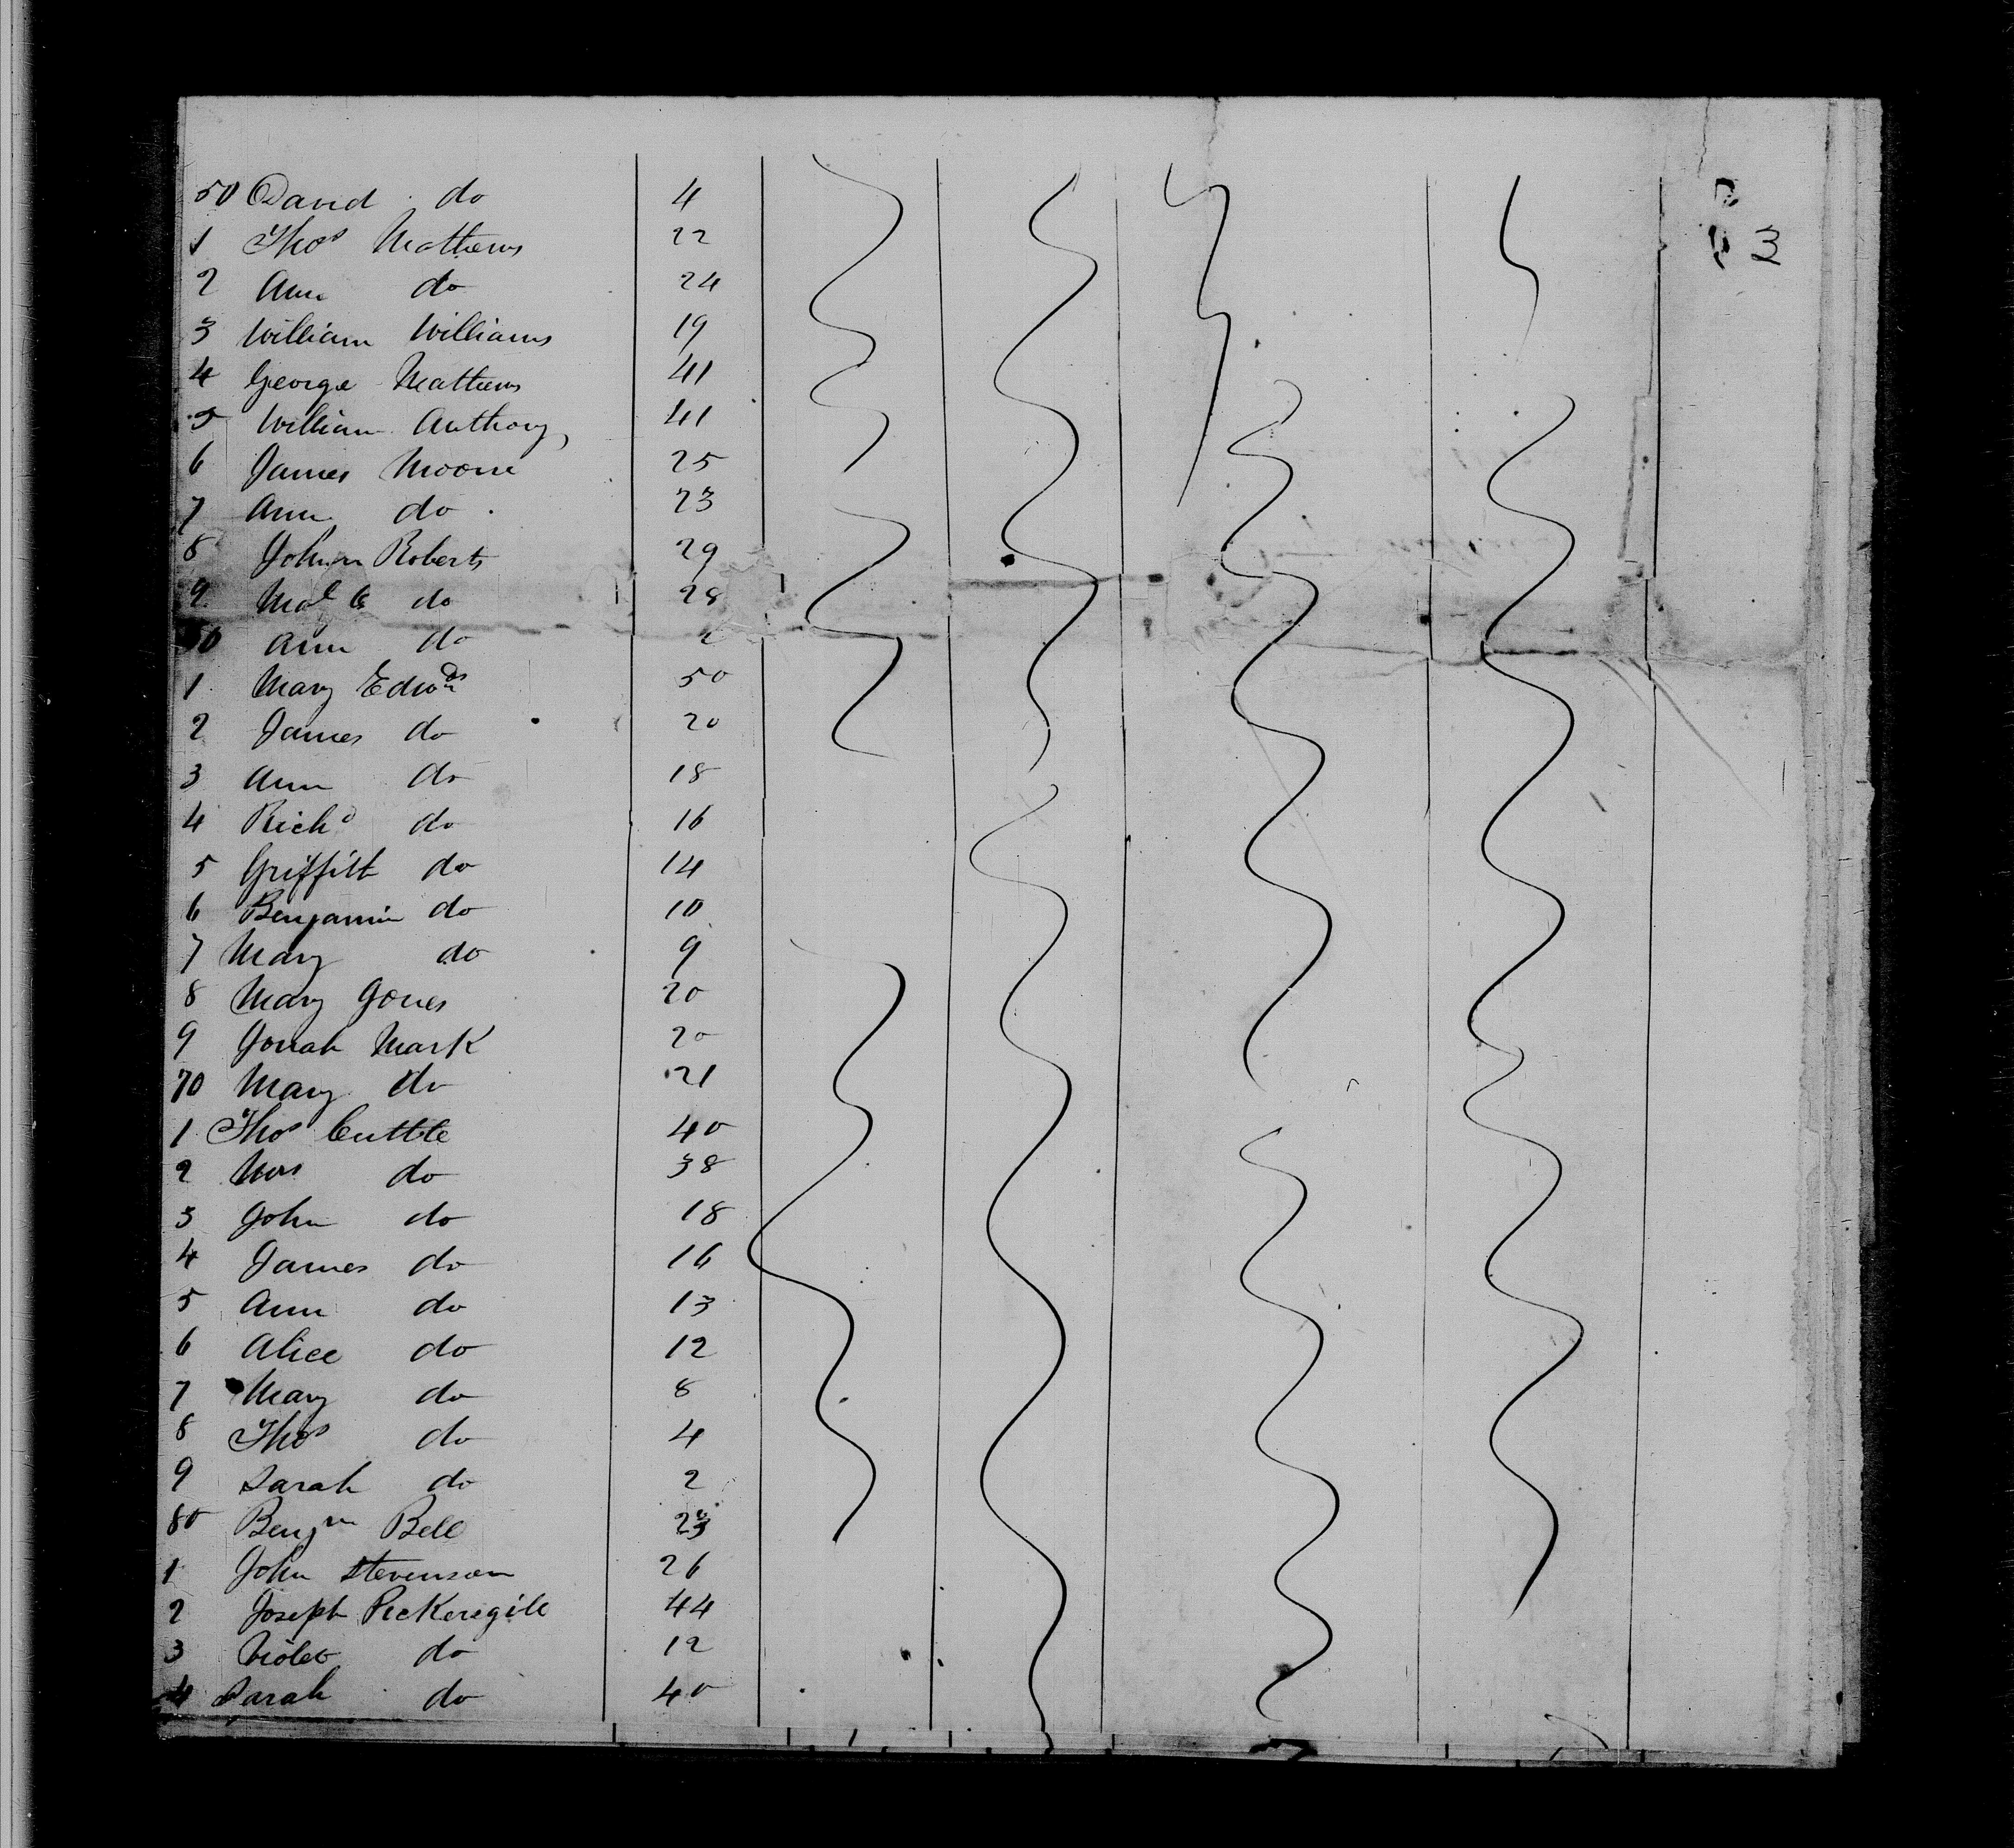 3
50 David do 4
1 Thos Mathews 22
2 Ann do 24
3 William Williams 19
4 George Mathews 41
5 William Anthony 41
6 James Moore 25
7 Ann do 23
8 John Roberts 29
9 do 28
60 Ann do 2
1 Mary Edwds 50
2 James do 20
3 Ann do 18
4 Richd do 16
5 Griffith do 14
6 Benjamin do 10
7 Mary do 9
8 Mary Jones 20
9 Jonah Mark 20
70 Mary do 21
1 Thos Cuttle 40
2 Mrs do 38
3 John do 18
4 James do 16
5 Ann do 13
6 Alice do 12
7 Mary do 8
8 Thos do 4
9 Sarah do 2
80 Benjm Bell 23
1 John Stevenson 26
2 Joseph Pickersgill 44
3 Violet do 12
4 Sarah do 40